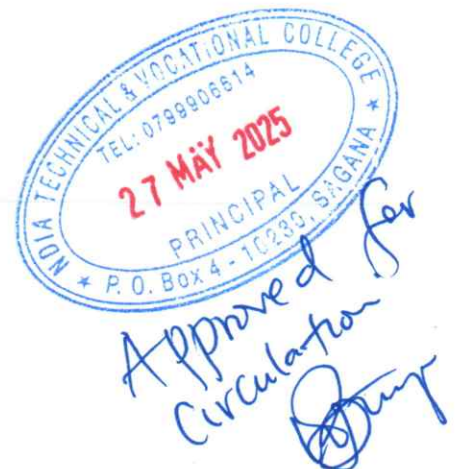 NDIA TECHNICAL & VOCATIONAL COLLEGE
TEL: 0799906614
27 MAY 2025
PRINCIPAL
* P. O. Box 4 - 10230, SAGANA *
Approved for
Circulation